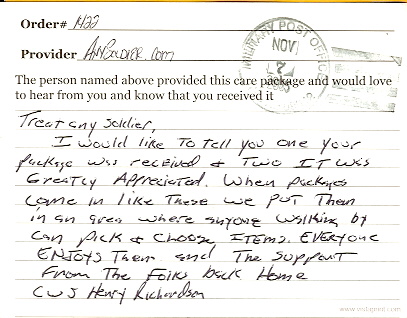 Order# 1422
Provider AnySoldier.com
MILITARY POST OFFICE
NOV
7
The person named above provided this care package and would love
to hear from you and know that you received it
Treat any Soldier,
I would like To tell you one your
package was received & Two IT was
Greatly Appreciated. When packages
come in like These we put Them
in an area where anyone walking by
can pick & choose ITems. EVEryone
ENJoys Them and The support
From The Folks back Home
CW3 Henry Richardson
www.vistaprint.com